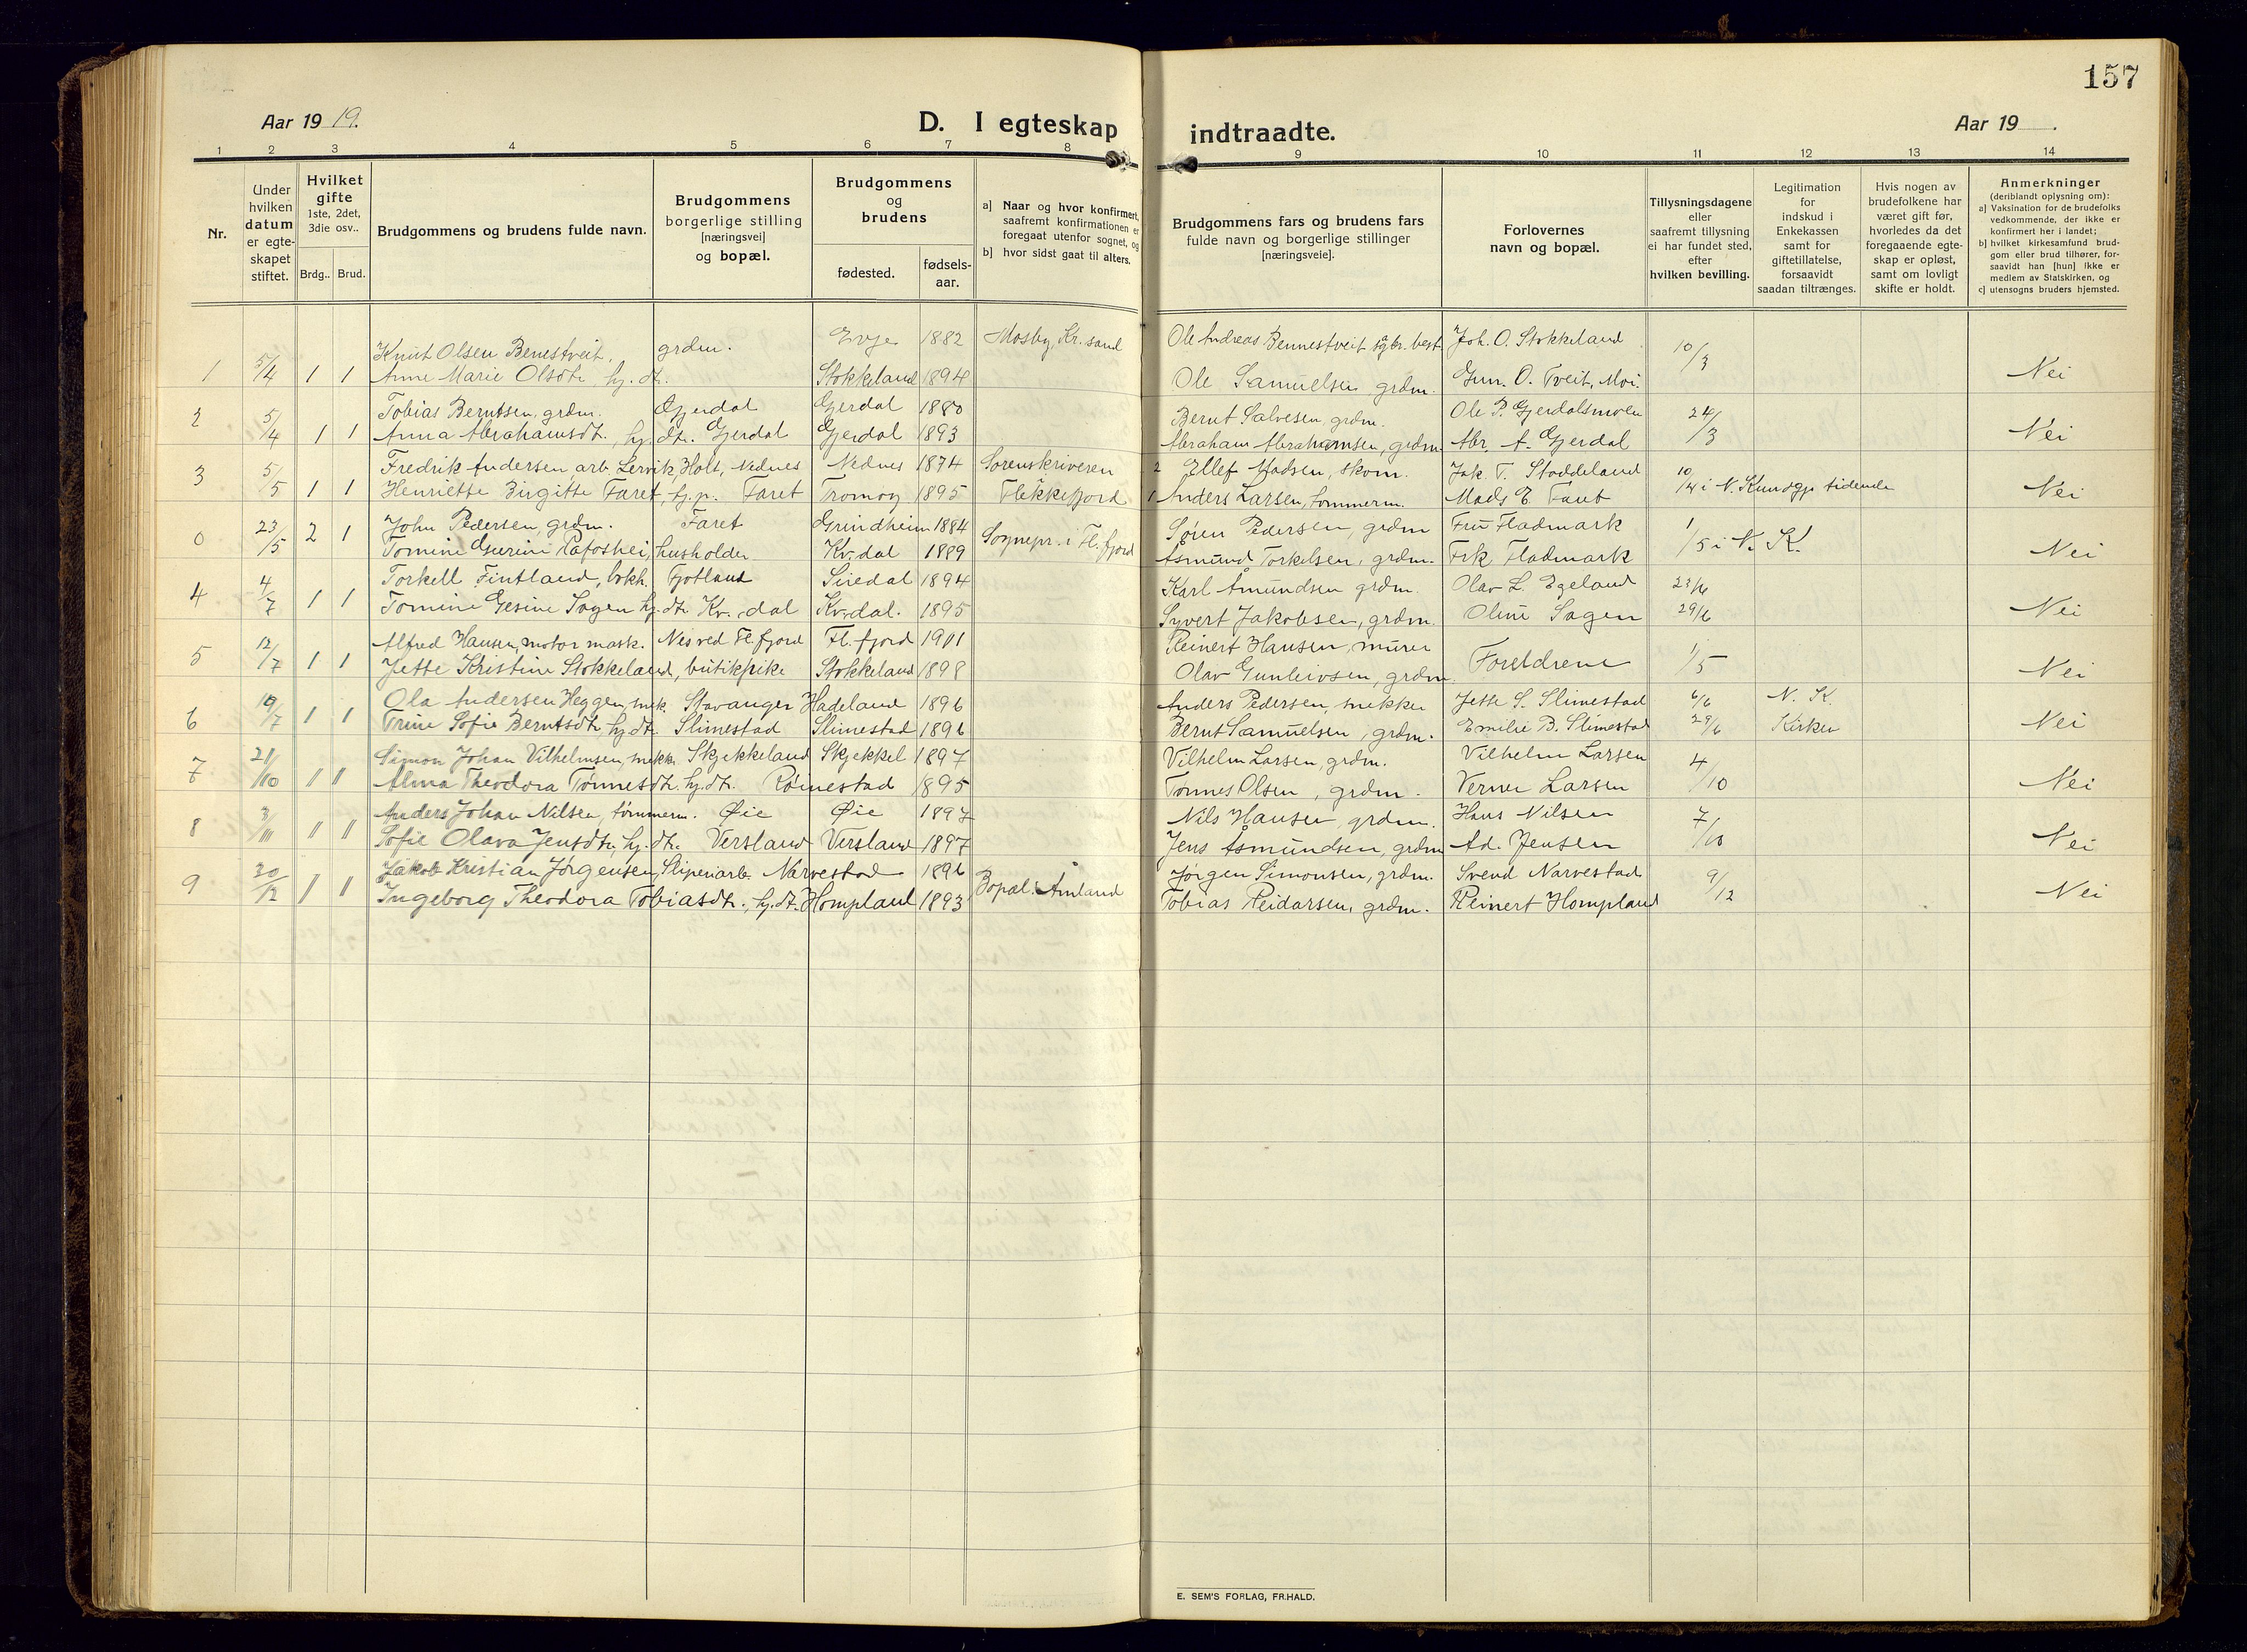 157
Aar 19 19.
D. I egteskap indtraadte.
Aar 19 .
1 2 3 4 5 6 7 8 9 10 11 12 13 14
Nr.
Under hvilken datum er egte-skapet stiftet.
Hvilket gifte 1ste, 2det, 3die osv..
Brdg.. Brud.
Brudgommens og brudens fulde navn.
Brudgommens borgerlige stilling [næringsvei] og bopæl.
Brudgommens og brudens
fødested. fødsels-aar.
a] Naar og hvor konfirmert, saafremt konfirmationen er foregaat utenfor sognet, og
b] hvor sidst gaat til alters.
Brudgommens fars og brudens fars fulde navn og borgerlige stillinger [næringsveie].
Forlovernes navn og bopæl.
Tillysningsdagene eller saafremt tillysning ei har fundet sted, efter hvilken bevilling.
Legitimation for indskud i Enkekassen samt for giftetillatelse, forsaavidt saadan tiltrænges.
Hvis nogen av brudefolkene har været gift før, hvorledes da det foregaaende egte-skap er opløst, samt om lovligt skifte er holdt.
Anmerkninger (deriblandt oplysning om):
a] Vaksination for de brudefolks vedkommende, der ikke er konfirmert her i landet;
b] hvilket kirkesamfund brud-gom eller brud tilhører, for-saavidt han [hun] ikke er medlem av Statskirken, og
c] utensogns bruders hjemsted.
Knut Olsen Benestveit, grdm. Evje 1882 Mosby, Kr. sand Ole Andreas Bennestveit Joh. O. Stokkeland 10/3
1 5/4 1 1 Anne Marie Olsdtr. hj. dtr. Stokkeland 1894 Ole Samuelsen grdm. Gun. O. Tveit, Moi. Nei
2 5/4 Tobias Berntsen, grdm. Gjerdal Gjerdal 1880 Bernt Salvesen, grdm. Ole P. Gjerdalsmoen 24/3
1 1 Anna Abrahamsdtr., hj. dtr. Gjerdal Gjerdal 1893 Abraham Abrahamsen, grdm. Abr. A. Gjerdal Nei
3 5/5 Fredrik Andersen arb. Lervik, Holt, Nednes Nednes 1874 Sorenskriveren 2 Ellef Madsen, skom. Jak. T. Stoddeland 10/4 i N. Kundgj. tidende
1 1 Henriette Birgitte Faret, hj. p. Faret Tromøy 1895 Flekkefjord 1 Anders Larsen, tømmerm. Mads E. Nei
0 23/5 2 1 John Pedersen, grdm. Faret Grindheim 1884 Sognepr. i Fl. fjord Søren Pedersen, grdm Fru Fladmark 1/5 i N. K.
Tomine Gurine Rafoshei, husholder Kv. dal 1889 Asmund Torkelsen, grdm. Frk Fladmark Nei
4 4/7 1 1 Torkell Fintland, brkh. Fjotland Siredal 1894 Karl Åmundsen grdm. Olav L. Egeland 23/6
Tomine Gesine Sagen hj. dtr. Kv. dal Kv. dal. 1895 Syvert Jakobsen, grdm. Oline Sagen 29/6 Nei
5 12/7 1 1 Alfred Hansen, motor mask. Nes ved Fl. fjord Fl. fjord 1901 Reinert Hansen, murer Foreldrene 1/5
Jette Kristine Stokkeland, butikpike Stokkeland 1898 Olav Gunleivsen, grdm. Nei
6 19/7 1 1 Ola Andersen Heggen, snek. Stavanger Hadeland 1896 Anders Pedersen, snekker Jette S. Slimestad 6/6 N. K.
Trine Sofie Berntsdtr. hj. dtr. Slimestad Slimestad 1896 Bernt Samuelsen, grdm. Emilie B. Slimestad 29/6 Kirken Nei
7 21/10 1 1 Simon Johan Vilhelmsen, snekk. Skjekkeland Skjekkel 1897 Vilhelm Larsen, grdm. Vilhelm Larsen 4/10
Alma Theodora Tønnesdtr. hj. dtr. Røinestad 1895 Tønnes Olsen, grdm. Verner Larsen Nei
8 3/11 1 1 Anders Johan Nilsen, tømmerm. Øie Øie 1897 Nils Hansen, grdm. Hans Nilsen 7/10
Sofie Olava Jensdtr., hj. dtr. Versland Versland 1897 Jens Åsmundsen, grdm Ad. Jensen Nei
9 30/12 1 1 Jakob Kristian Jørgensen, Sliperiarb. Narvestad 1896 Bopæl: Amland Jørgen Simonsen, grdm. Svend Narvestad 9/12
Ingeborg Theodora Tobiasdtr., hj. dt. Hompland 1893 Tobias Reidarsen, grdm. Reinert Hompland Nei
E. SEM'S FORLAG, FR.HALD.